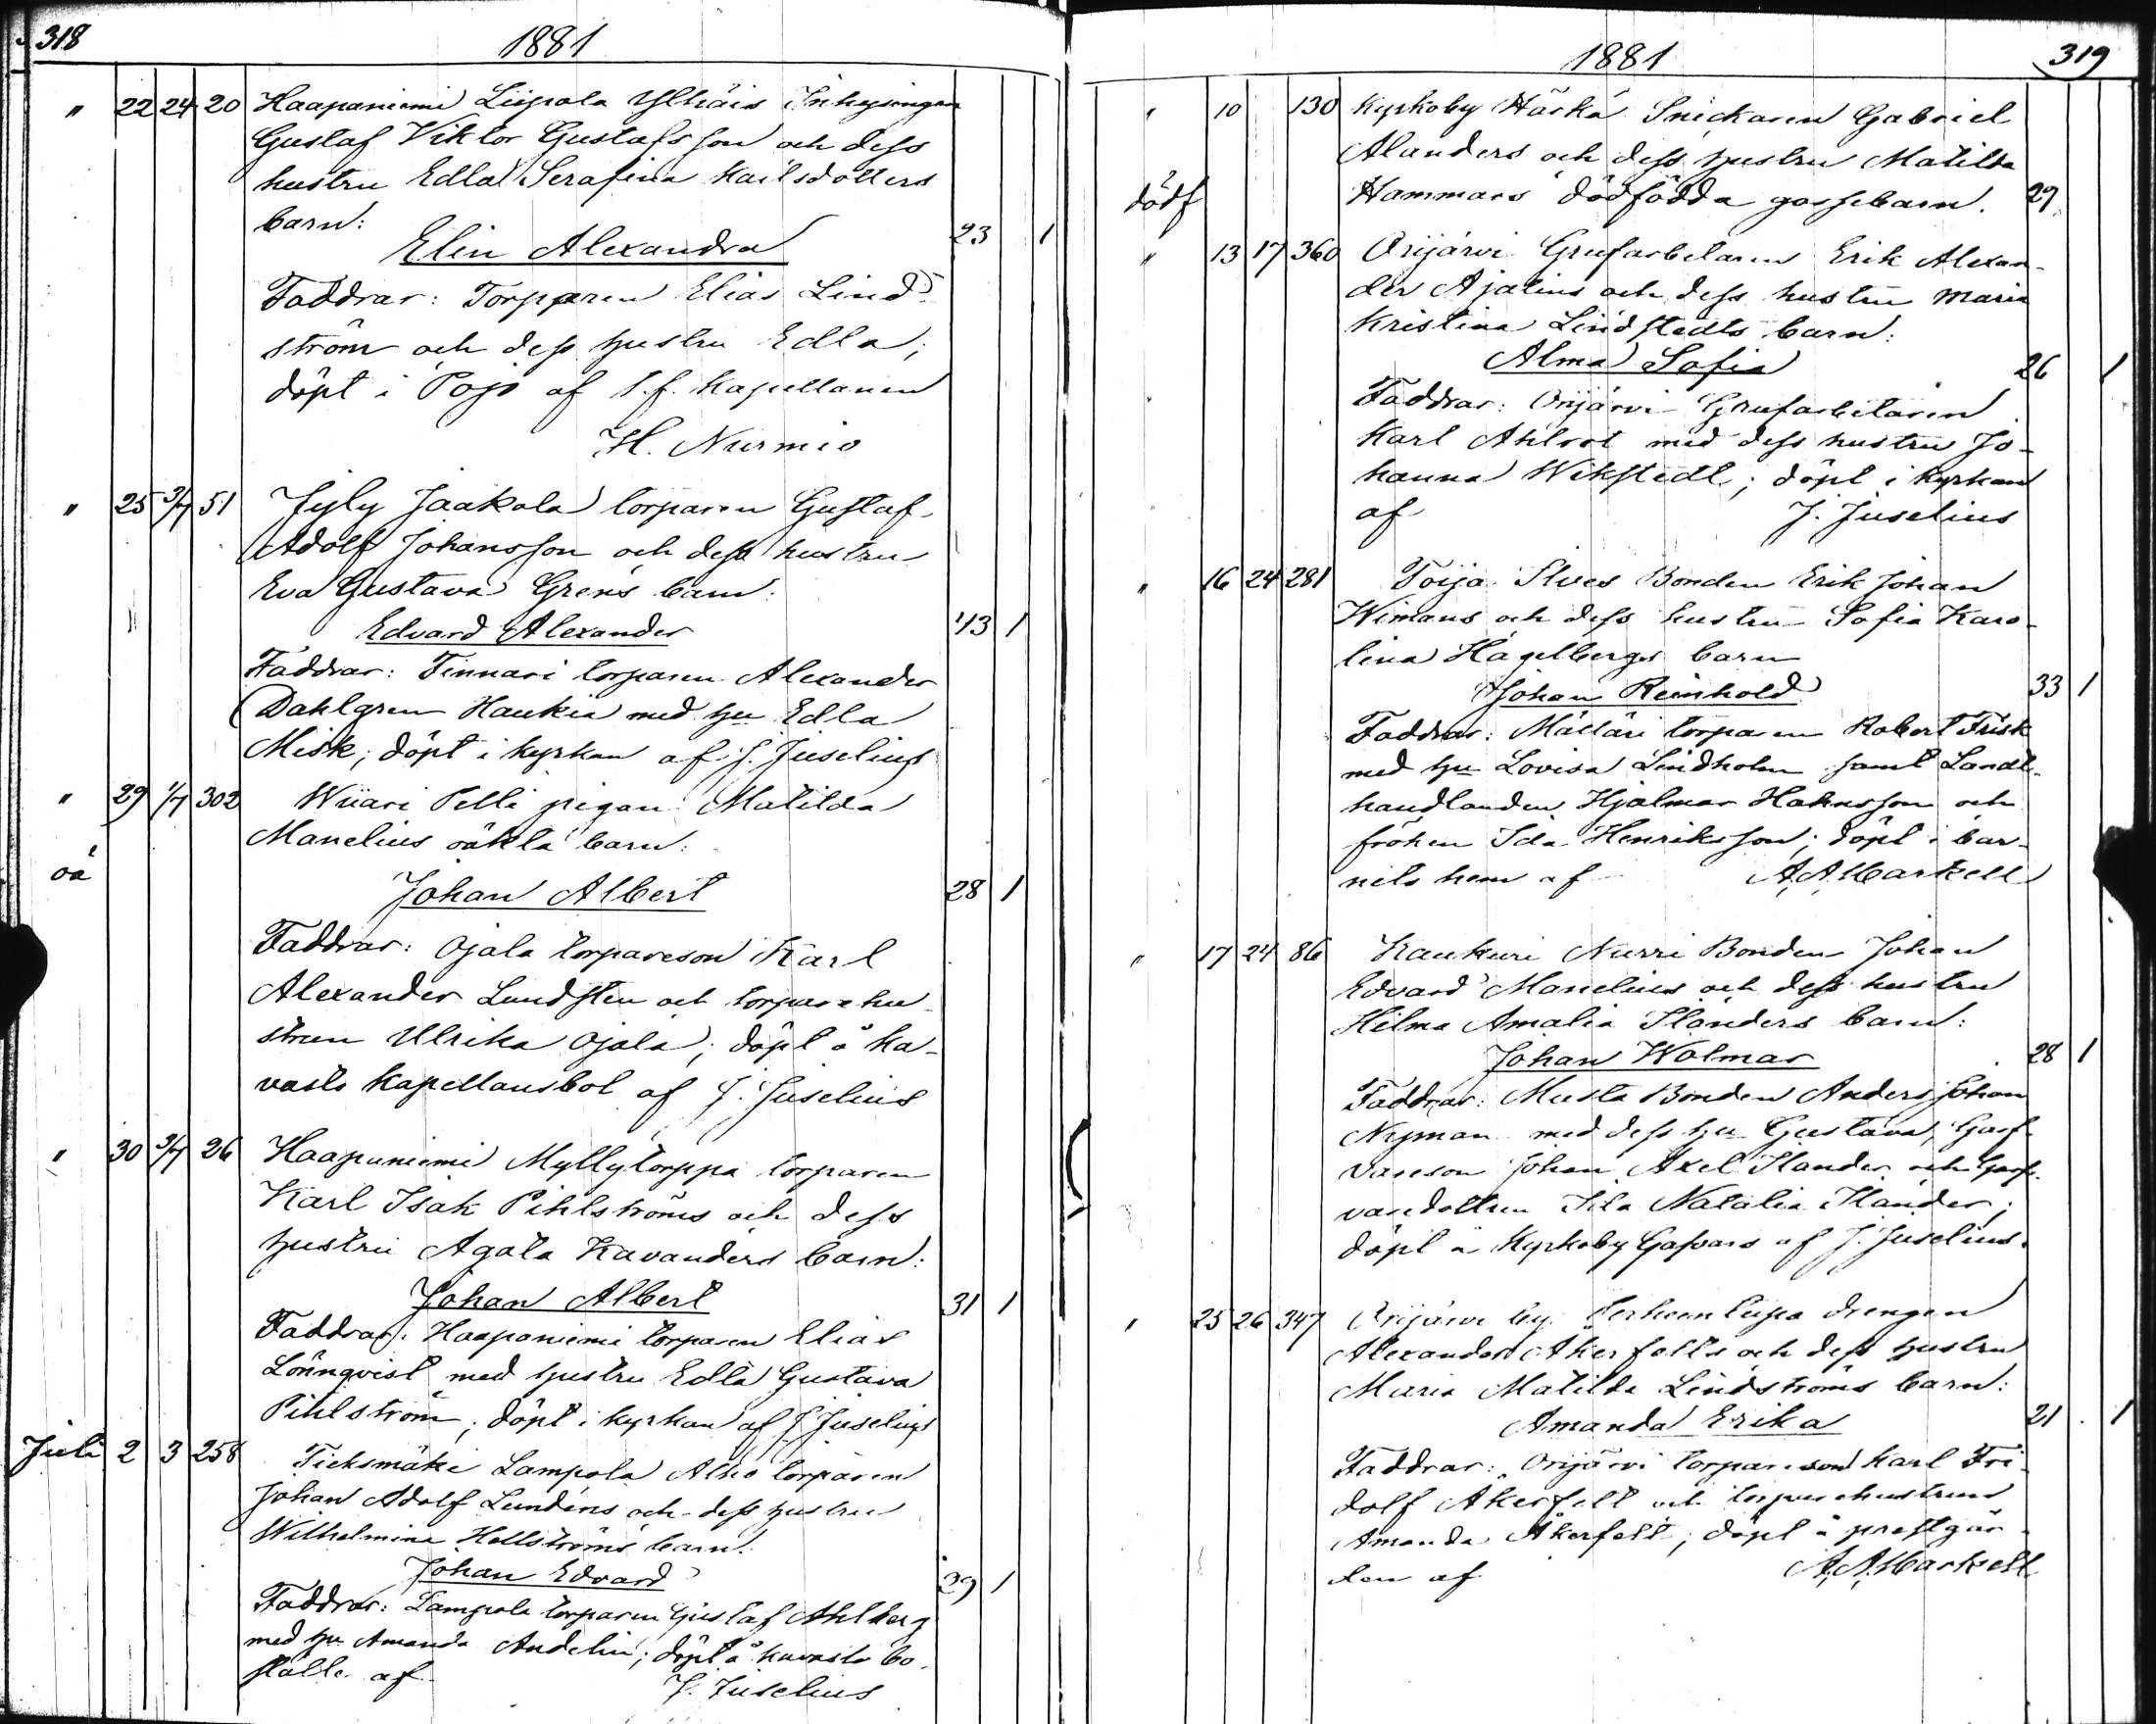 318
1881
" 22 24 20 Haapaniemi Liipola Ylhäis Inhysingen
Gustaf Viktor Gustafsson och dess
hustru Edla Serafina Karlsdotters
barn:
Elin Alexandra 23 1
Faddrar: Torparen Elias Lind-
ström och dess hustru Edla;
döpt i Pojo af t.f. Kapellanen
H. Nurmio
" 25 3/7 51 Jyly Jaakola torparen Gustaf
Adolf Johansson och dess hustru
Eva Gustava Grens barn:
Edvard Alexander 43 1
Faddrar: Finnari torparen Alexander
Dahlgren Haukia med hu Edla
Misk; döpt i kyrkan af J. Juselius
" 29 1/7 302 Wiiari Pelli pigan Matilda
Manelius oäkta barn:
oä
Johan Albert 28 1
Faddrar: Ojala torpareson Karl
Alexander Lundsten och torparehu-
strun Ulrika Ojala; döpt å Ka-
vasto Kapellansbol af J. Juselius
" 30 3/7 26 Haapaniemi Myllytorppa torparen
Karl Isak Pihlströms och dess
hustru Agata Kavanders barn:
Johan Albert 31 1
Faddrar: Haapaniemi torparen Elias
Lönnqvist med hustru Edla Gustava
Pihlström; döpt i kyrkan af J. Juselius
Juli 2 3 258 Tieksmäki Lampola Alho torparen
Johan Adolf Lundéns och dess hustru
Wilhelmina Hellströms barn:
Johan Edvard 39 1
Faddrar: Lampola torparen Gustaf Ahlberg
med hu Amanda Andelin; döpt å Kavasto bo-
ställe af
J. Juselius
1881
319
" 10 130 Kyrkoby Härkä Snickaren Gabriel
Alanders och dess hustru Matilda
dödf Hammars dödfödda gossebarn. 29
" 13 17 360 Orijärvi Grufarbetaren Erik Alexan-
der Ajalins och dess hustru Maria
Kristina Lindstedts barn:
Alma Sofia 26 1
Faddrar: Orijärvi Grufarbetaren
Karl Ahlrot med dess hustru Jo-
hanna Wikstedt; döpt i kyrkan
af J. Juselius
" 16 24 281 Toija Ilves Bonden Erik Johan
Wimans och dess hustru Sofia Karo-
lina Hagelbergs barn
Johan Reinhold 33 1
Faddrar: Mältäri torparen Robert Frisk
med hu Lovisa Lindholm samt Landt-
handlanden Hjalmar Hahnsson och
fröken Ida Henriksson; döpt i bar-
nets hem af A. A. Markell
" 17 24 86 Kaukuri Nurri Bonden Johan
Edvard Manelius och dess hustru
Hilma Amalia Ilanders barn:
Johan Wolmar 28 1
Faddrar: Musta Bonden Anders Johan
Nyman med dess hu Gustava, Gasf-
vareson Johan Axel Ilander och Garf-
varedottren Ida Natalia Ilander;
döpt å Kyrkoby Gasvars af J. Juselius.
" 25 26 347 Orijärvi by drengen
Alexander Åkerfelts och dess hustru
Maria Matilda Lindströms barn:
Amanda Erika 21 1
Faddrar: Orijärvi torpareson Karl Fri-
dolf Åkerfelt och torparehustrun
Amanda Åkerfelt; döpt å prestgår-
den af A. A. Markell